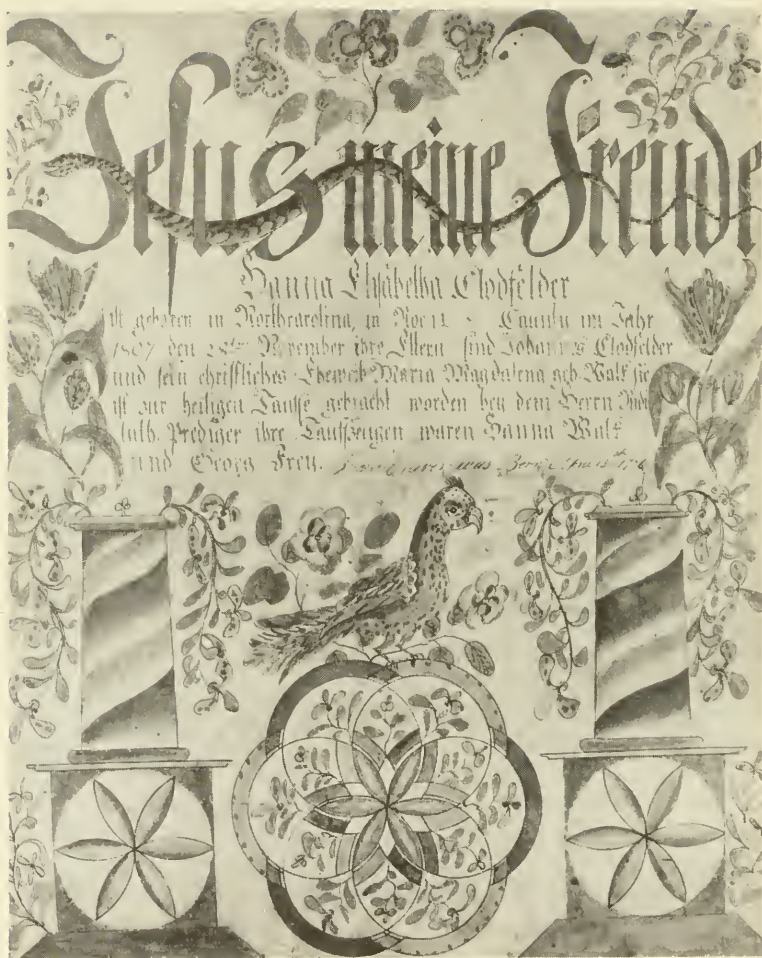 Jesus meine Freude
Hanna Elisabetha Clodfelder
ist geboren in Northcarolina, in County im Jahr
1807 den November ihre Eltern sind Johannes Clodfelder
und sein christliches Eheweib Maria Magdalena geb Walk sie
ist zur heiligen Tauffe gebracht worden bey dem Herrn
Prediger ihre Tauffzeugen waren Hanna Walk
und Georg Frey. was Born